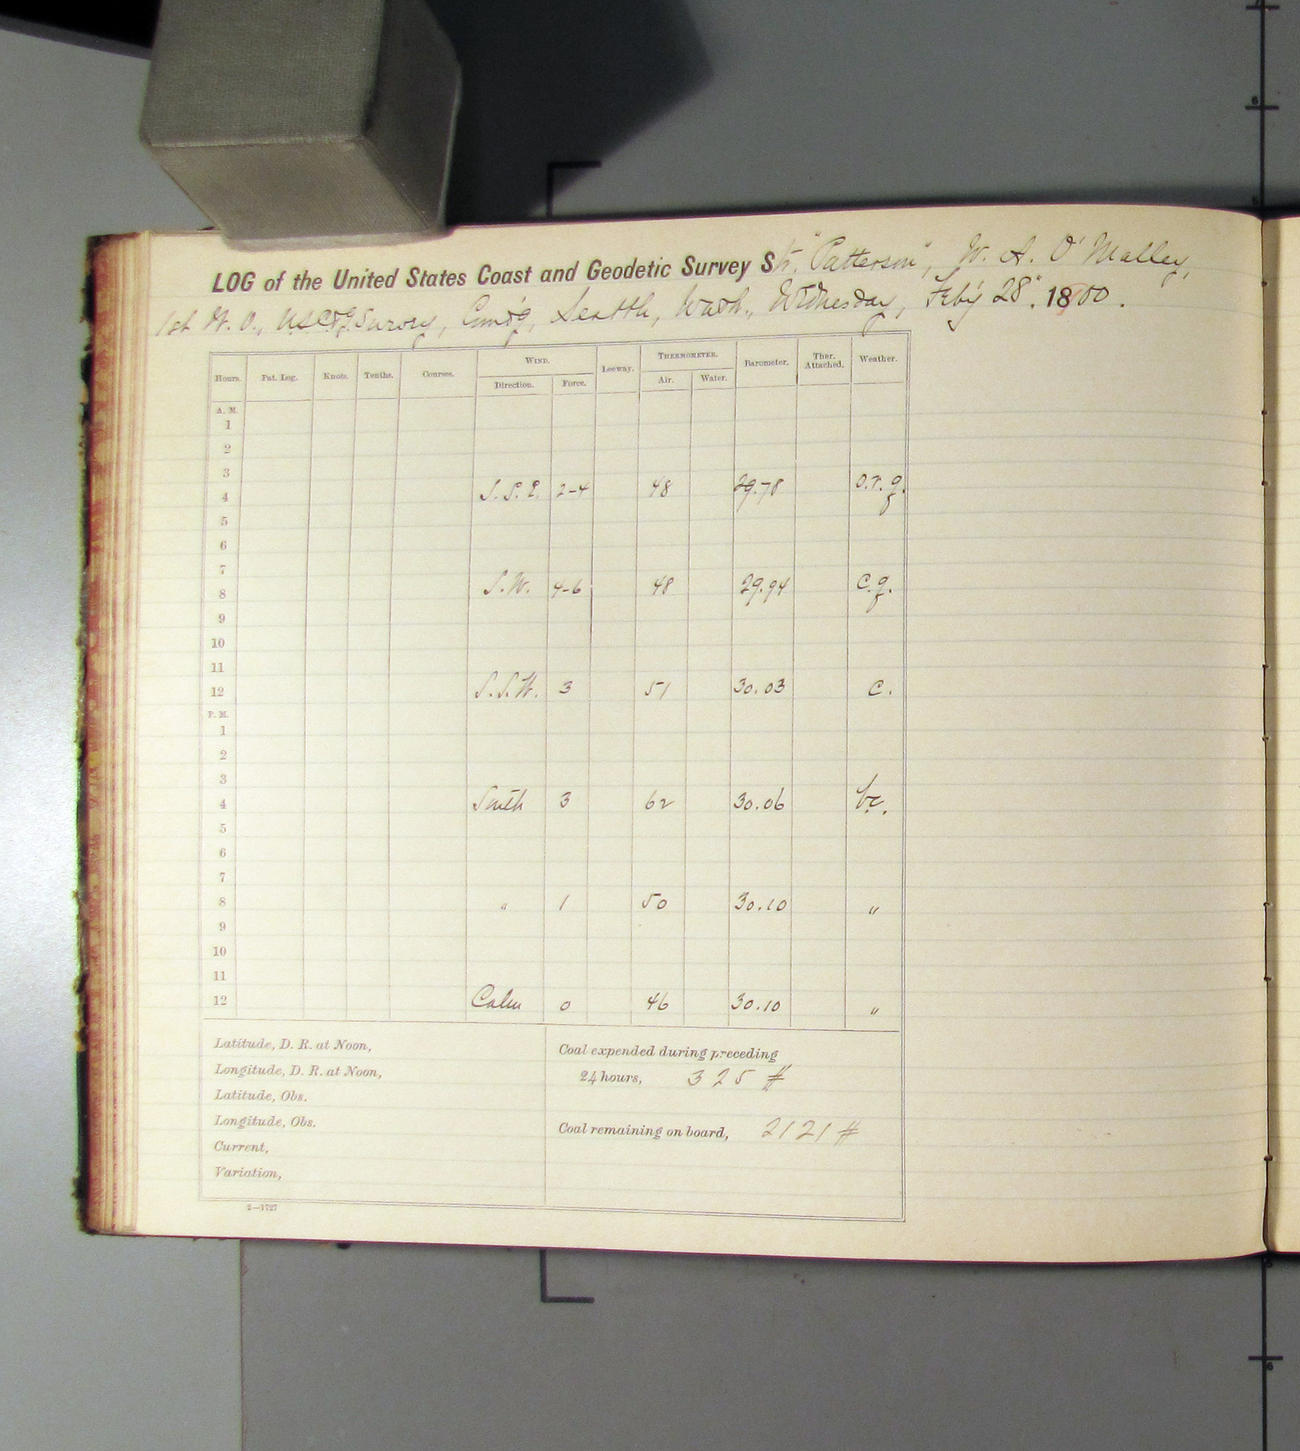 LOG of the United States Coast and Geodetic Survey Str. "Patterson", W. A. O'Malley,
1st W. O., USC&GSurvey, Com'd'g, Seattle, Wash., Wednesday, Feb'y 28", 1900.
Hours. Pat. Log. Knots. Tenths. Courses. WIND. Leeway. THERMOMETER. Barometer. Ther. Attached. Weather.
Direction. Force. Air. Water.
A. M.
1
2
3
4 S.S.E. 2-4 48 29.78 o.r.q.
5
6
7
8 S.W. 4-6 48 29.94 c.q.
9
10
11
12 S.S.W. 3 51 30.03 c.
P. M.
1
2
3
4 South 3 62 30.06 bc.
5
6
7
8 " 1 50 30.10 "
9
10
11
12 Calm 0 46 30.10 "
Latitude, D. R. at Noon,
Longitude, D. R. at Noon,
Latitude, Obs.
Longitude, Obs.
Current,
Variation,
Coal expended during preceding
24 hours, 325 #
Coal remaining on board, 2121 #
2—1727